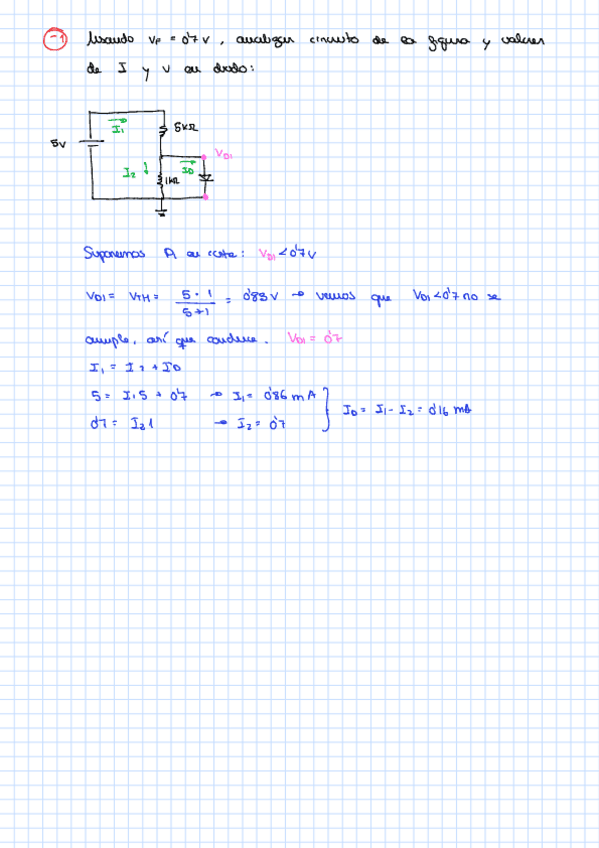 -1 Usando VF = 0'7 V, analizar circuito de la figura y valores
de I y V en diodo:
I1
5kΩ
5V
VD1
I2
ID
1kΩ
Suponemos D en corte: VD1 < 0'7V
VD1 = VTH = 5 · 1 / 5+1 = 0'83 V → vemos que VD1 < 0'7 no se
cumple, así que conduce. VD1 = 0'7
I1 = I2 + ID
5 = I1 5 + 0'7 → I1 = 0'86 mA
ID = I1 - I2 = 0'16 mA
0'7 = I2 1 → I2 = 0'7